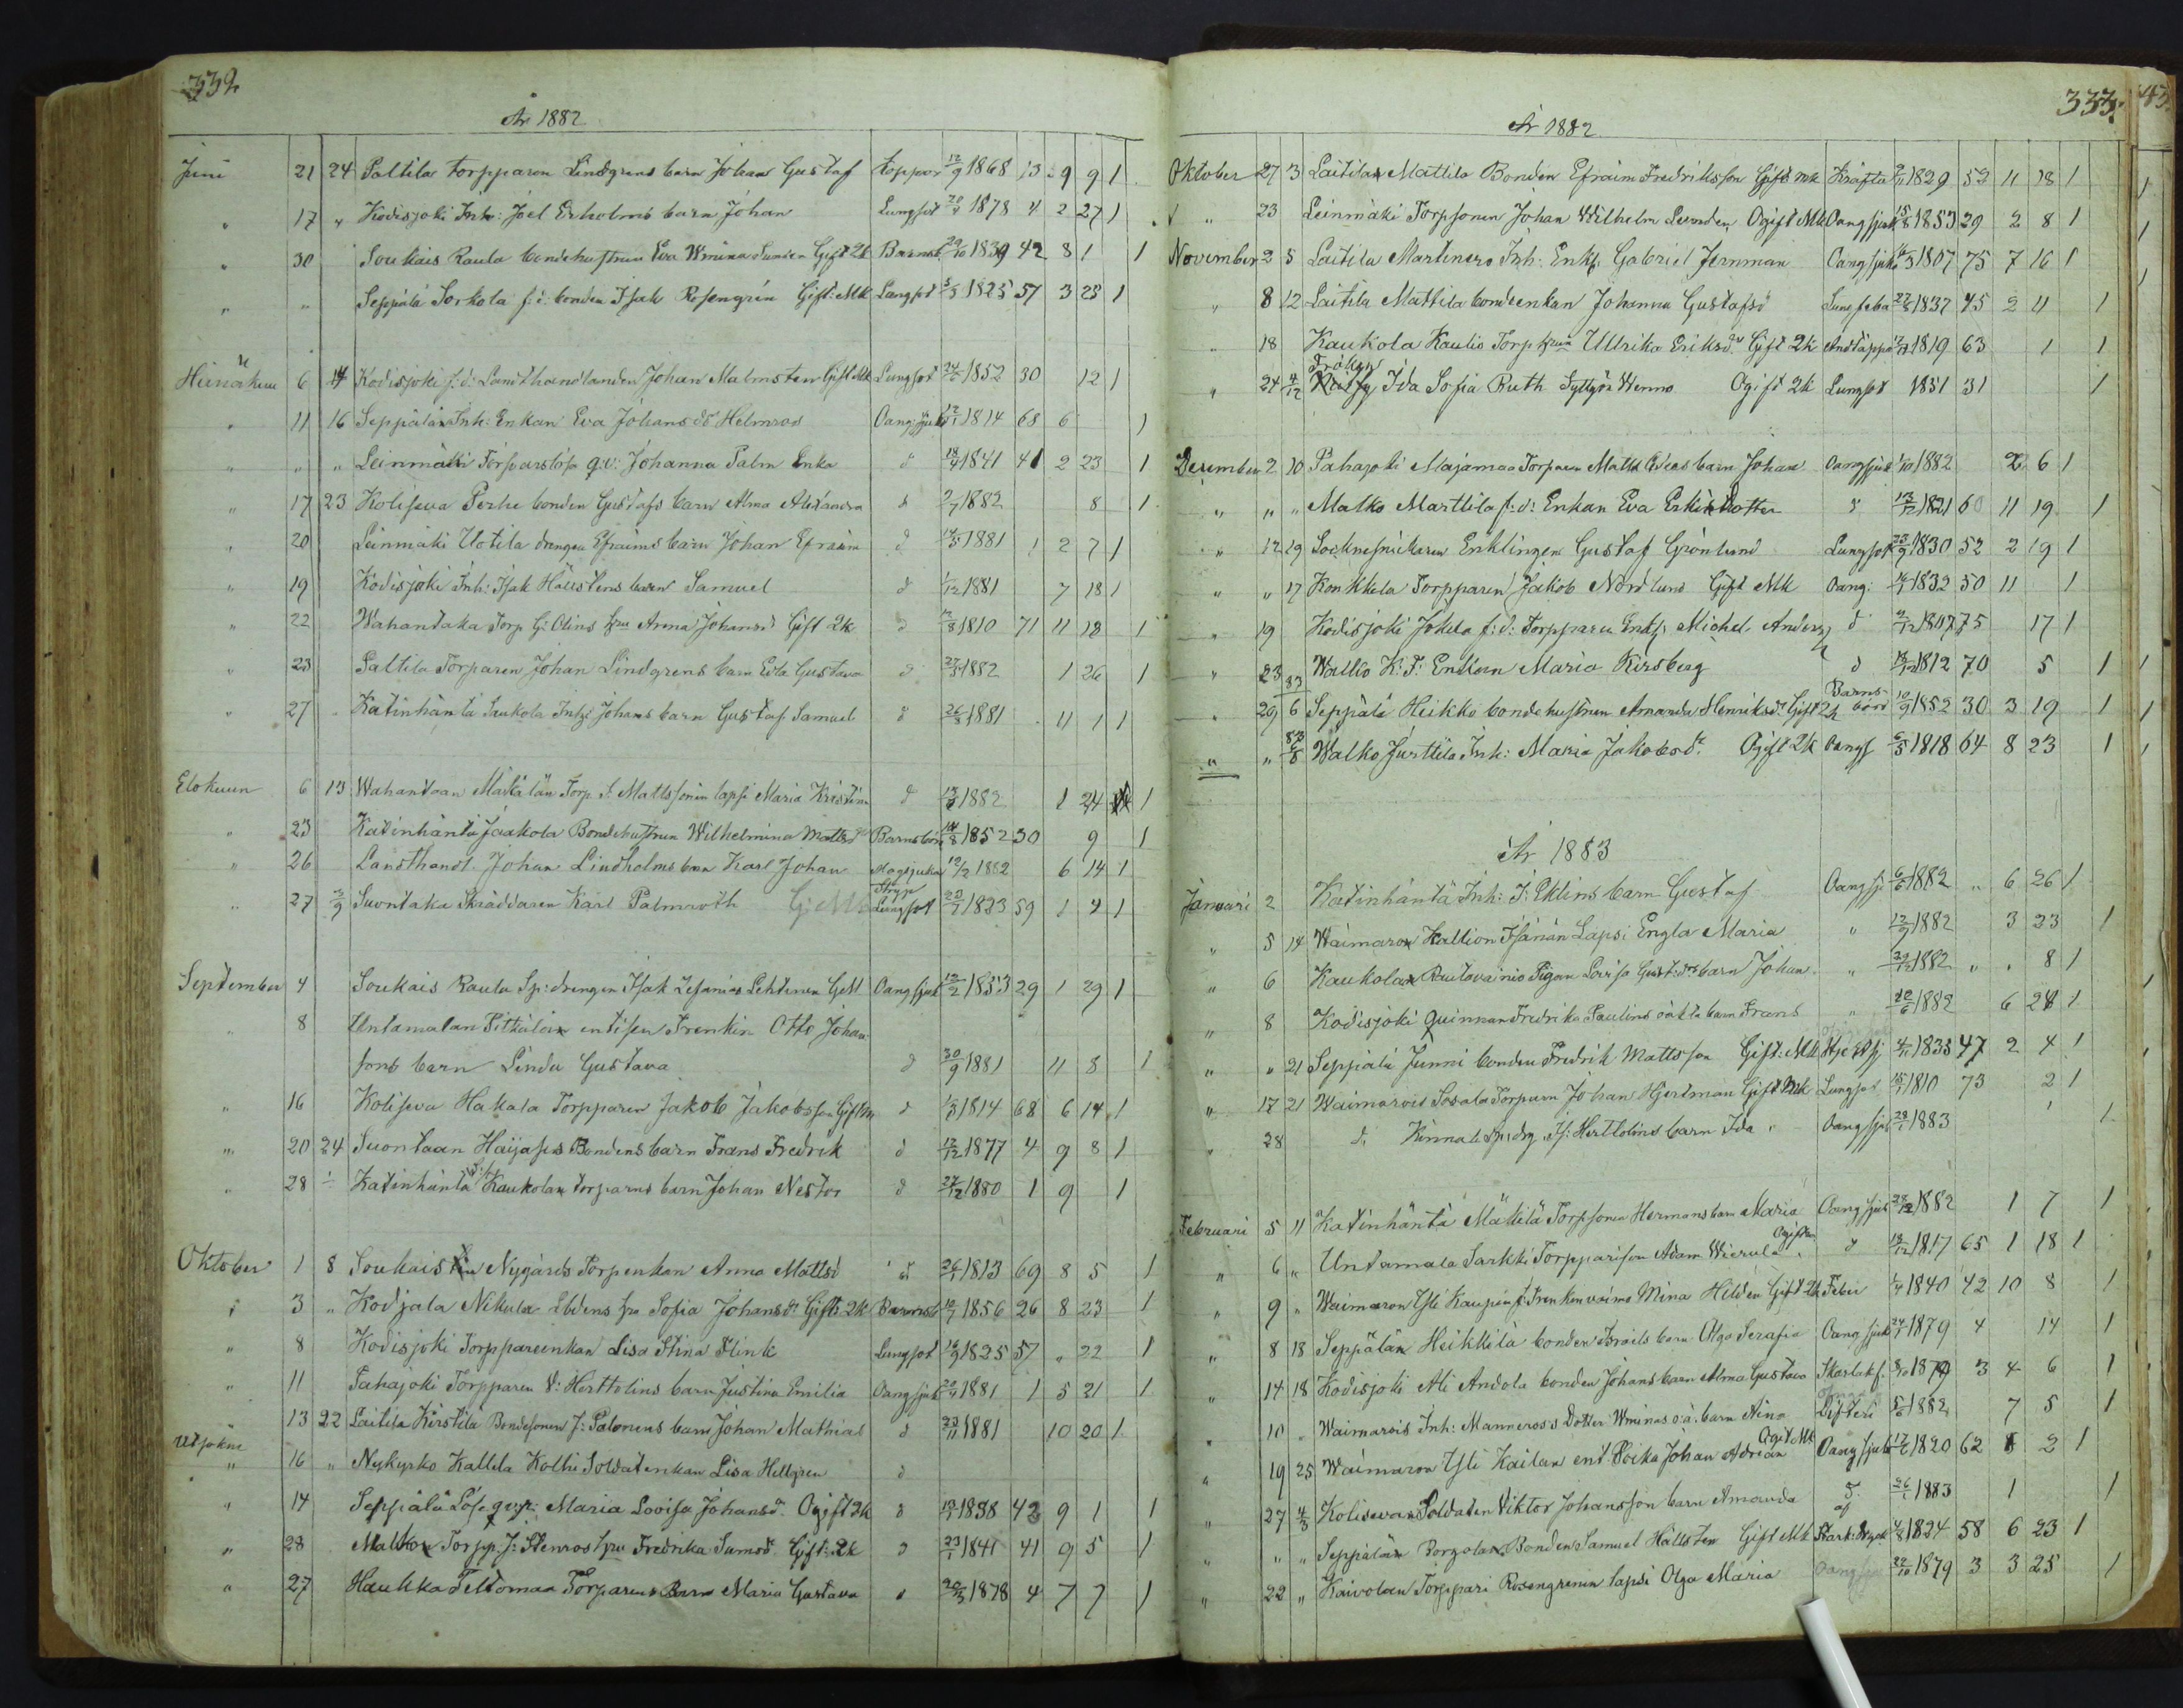 332
År 1882
Juni 21 24 Paltila torpparen Lindgrens barn Johan Gustaf koppor 12/9 1868 13 9 9 1
" 17 " Kodisjoki Inh: Joel Erholms barn Johan Lungsot 20/4 1878 4 2 27 1
" 30 Soukais Raula bondehustrun Eva Wmina Gift 2k Barnsb. 29/10 1839 42 8 1 1
" " Seppälä Sorkola f:d: bonden Isak Rosengrén Gift: Mk Lungsot 5/3 1825 57 3 25 1
Heinäkuu 6 14 Kodisjoki f:d: Landthandlanden Johan Malmsten Gift Mk Lungsot 24/6 1852 30 12 1
" 11 16 Seppälän Inh: Enkan Eva Johans dr Helmros Oang:sjukd 12/1 1814 68 6 1
" " " Leinmäki Johanna Palm Enka d 18/4 1841 41 2 23 1
" 17 23 Kolisewa Perhe bonden Gustafs barn Alma Alexandra d 9/7 1882 8 1
" 20 Leinmäki Uotila drengen Efraims barn Johan Efraim d 13/5 1881 1 2 7 1
" 19 Kodisjoki Inh: Isak Hällstens barn Samuel d 1/12 1881 7 18 1
" 22 Wahantaka Torp G: Olins hru Anna Johansd Gift 2k d 4/8 1810 71 11 18 1
" 23 Paltila Torparen Johan Lindgrens barn Eda Gustava d 27/5 1882 1 26 1
" 27 Katinhäntä Saukola Inhys Johans barn Gustaf Samuel d 26/8 1881 11 1 1
Elokuun 6 13 Wahantaan Mäkälän Torp. J. Mattssonin lapsi Maria Kristina d 13/6 1882 1 24 1
" 23 Katinhäntä Jaakola Bondehustrun Wilhelmina Mattsdr Barnsbörd 14/8 1852 30 9 1
" 26 Landthandl. Johan Lindholms barn Karl Johan Magsjuka 12/2 1882 6 14 1
Stryp
" 27 3/9 Suontaka Skräddaren Karl Palmroth G: Mk Lungsot 23/7 1823 59 1 4 1
September 4 Soukais Raula Sp: drengen Isak Zefanias Lehtinen Gift Oang sjukd 12/2 1853 29 1 29 1
" 8 Untamalan Pitkälän entisen Trenkin Otto Johan
sons barn Linda Gustava d 30/9 1881 11 8 1
" 16 Kolisewa Hakala Torpparen Jakob Jakobsson Gift M d 1/3 1814 68 6 14 1
" 20 24 Suontaan Haijasen Bondens barn Frans Fredrik d 12/12 1877 4 9 8 1
" 28 Katinhäntä Kaukolan torparns barn Johan Nestor d 27/12 1880 1 9 1
Oktober 1 8 Soukais Nygårds Torpenkan Anna Mattsd d 26/1 1813 69 8 5 1
" 3 " Kodjala Nikula Ebdens hru Sofia Johansdr Gift 2k Barnsb. 10/1 1856 26 8 23 1
" 8 Kodisjoki Torppareenkan Lisa Stina Flink Lungsot 16/9 1825 57 " 22 1
" 11 Pahajoki Torpparen V: Herttolins barn Justina Emilia Oang sjukd 20/4 1881 1 5 21 1
" 13 22 Laitila Kirstilä Bondesonen J: Palomens barn Johan Mathias d 23/11 1881 10 20 1
Utsokne
" 16 " Nykyrko Kallela Kolhi Soldatenkan Lisa Hellgren d
" 14 Seppälä Maria Lovisa Johansdr Ogift 2k d 13/1 1838 42 9 1 1
" 23 Malkon Torpp. J: Stenros hru Fredrika Sumsdr Gift: 2k d 23/1 1841 41 9 5 1
" 27 Haukka Teltomaa Torparens Barn Maria Gustava d 20/3 1878 4 7 7 1
333. 43.
År 1882
Oktober 27 3 Laitilan Mattila Bonden Efraim Fredriksson Gift mk Kräfta 9/11 1829 52 11 18 1
" 23 Leinmäki Torpsonen Johan Wilhelm Lunden Ogift Mk Oang sjukd 15/8 1853 29 2 8 1
November 2 5 Laitila Martinero Inh: Enkl. Gabriel Jernman Oang sjukd 16/3 1807 75 7 16 1
" 8 12 Laitila Mattila bondenkan Johanna Gustafsd Lung feber 27/8 1837 45 2 11 1
" 18 Kaukola Kaulio Torp hru Ullrika Eriksdr Gift 2k Andtäppa 1819 63 1 1
Fröken
" 24 4/12 Ida Sofia Ruth Syttyjä Winno Ogift 2k Lungsot 1851 31 1
December 2 10 Pahajoki Majamaa Torparen Matts barn Johan Oang sjukd 1/10 1882 2 6 1
" " " Malko Marttila f:d: Enkan Eva Erkintotter d 13/12 1821 60 11 19 1
" 12 19 Socknesnickaren Enklingen Gustaf Grönlund Lungsot 23/9 1830 52 2 19 1
" " 17 Konkkela Torpparen Jakob Nordlund Gift Mk Oang: 12/1 1832 50 11 1
" 19 Kodisjoki Jokela f:d: Torpparen Enkl: Michel Anders d 2/12 1807 75 17 1
" 23 Walko K: F: Enkan Maria Kirsberg d 18/12 1812 70 5 1
83
Barns-
" 29 6 Seppälä Heikko bondehustrun Amanda Henriksdr Gift 2k börd 10/9 1852 30 3 19 1
" " 83 6/8 Walko Jurttila Inh: Maria Jakobsdr. Ogift 2k Oangs 6/3 1818 64 8 23 1
År 1883
Januari 2 Katinhäntä Inh: J: Eklins barn Gustaf Oang sj 6/6 1882 " 6 26 1
" 5 14 Waimaron Hallion Isännän Lapsi Engla Maria " 12/9 1882 3 23 1
" 6 Kaukolan Rautovainio Pigan Lovisa Gust:drs barn Johan " 29/12 1882 " " 8 1
" 8 Kodisjoki Quinnan Fredrika Paulins oäkta barn Frans " 10/6 1882 6 28 1
" " 21 Seppälä Junni bonden Fredrik Mattsson Gift: Mk 4/11 1835 47 2 4 1
" 17 21 Waimarois Sosala Torparn Johan Hjertman Gift Mk Lungsot 15/1 1810 73 2 1
" 28 d. Kinnala Sp: drg. Is: Herttolins barn Ida Oang sjd 28/1 1883 1
Februari 5 11 Katinhäntä Mäkilä Torpsonen Hermans barn Maria Oang sjukd 28/12 1882 1 7 1
Ogift m
" 6 " Untamala Sarkki Torpparison Adam Wierula d 18/12 1817 65 1 18 1
" 9 " Waimaron Ysti Kaupin f: Trenkinvaimo Mina Hilden Gift 2k Feber 1/4 1840 42 10 8 1
" 8 18 Seppälän Heikkilä bonden Israels barn Olga Serafia Oang sjukd 24/1 1879 4 14 1
" 14 18 Kodisjoki Ali Andola bonden Johans barn Alma Gustava Skarlakf. 8/10 1879 3 4 6 1
" 10 " Waimarois Inh: Manneross Dotter Wminas o:ä: barn Aina Difteri 5/6 1882 7 5 1
Ogift Mk
" 19 25 Waimaron Ysti Kailan ent. Poika Johan Adrian Oang sjukd 17/6 1820 62 8 2 1
" 27 4/3 Kolisevan Soldaten Viktor Johansson barn Amanda d. 26/1 1883 1 1
" " " Seppälän Borgolan Bonden Samuel Hällsten Gift Mk 4/8 1824 58 6 23 1
" 22 " Kaivolan Torppari Rosengrenin lapsi Olga Maria Oang sju 28/10 1879 3 3 25 1